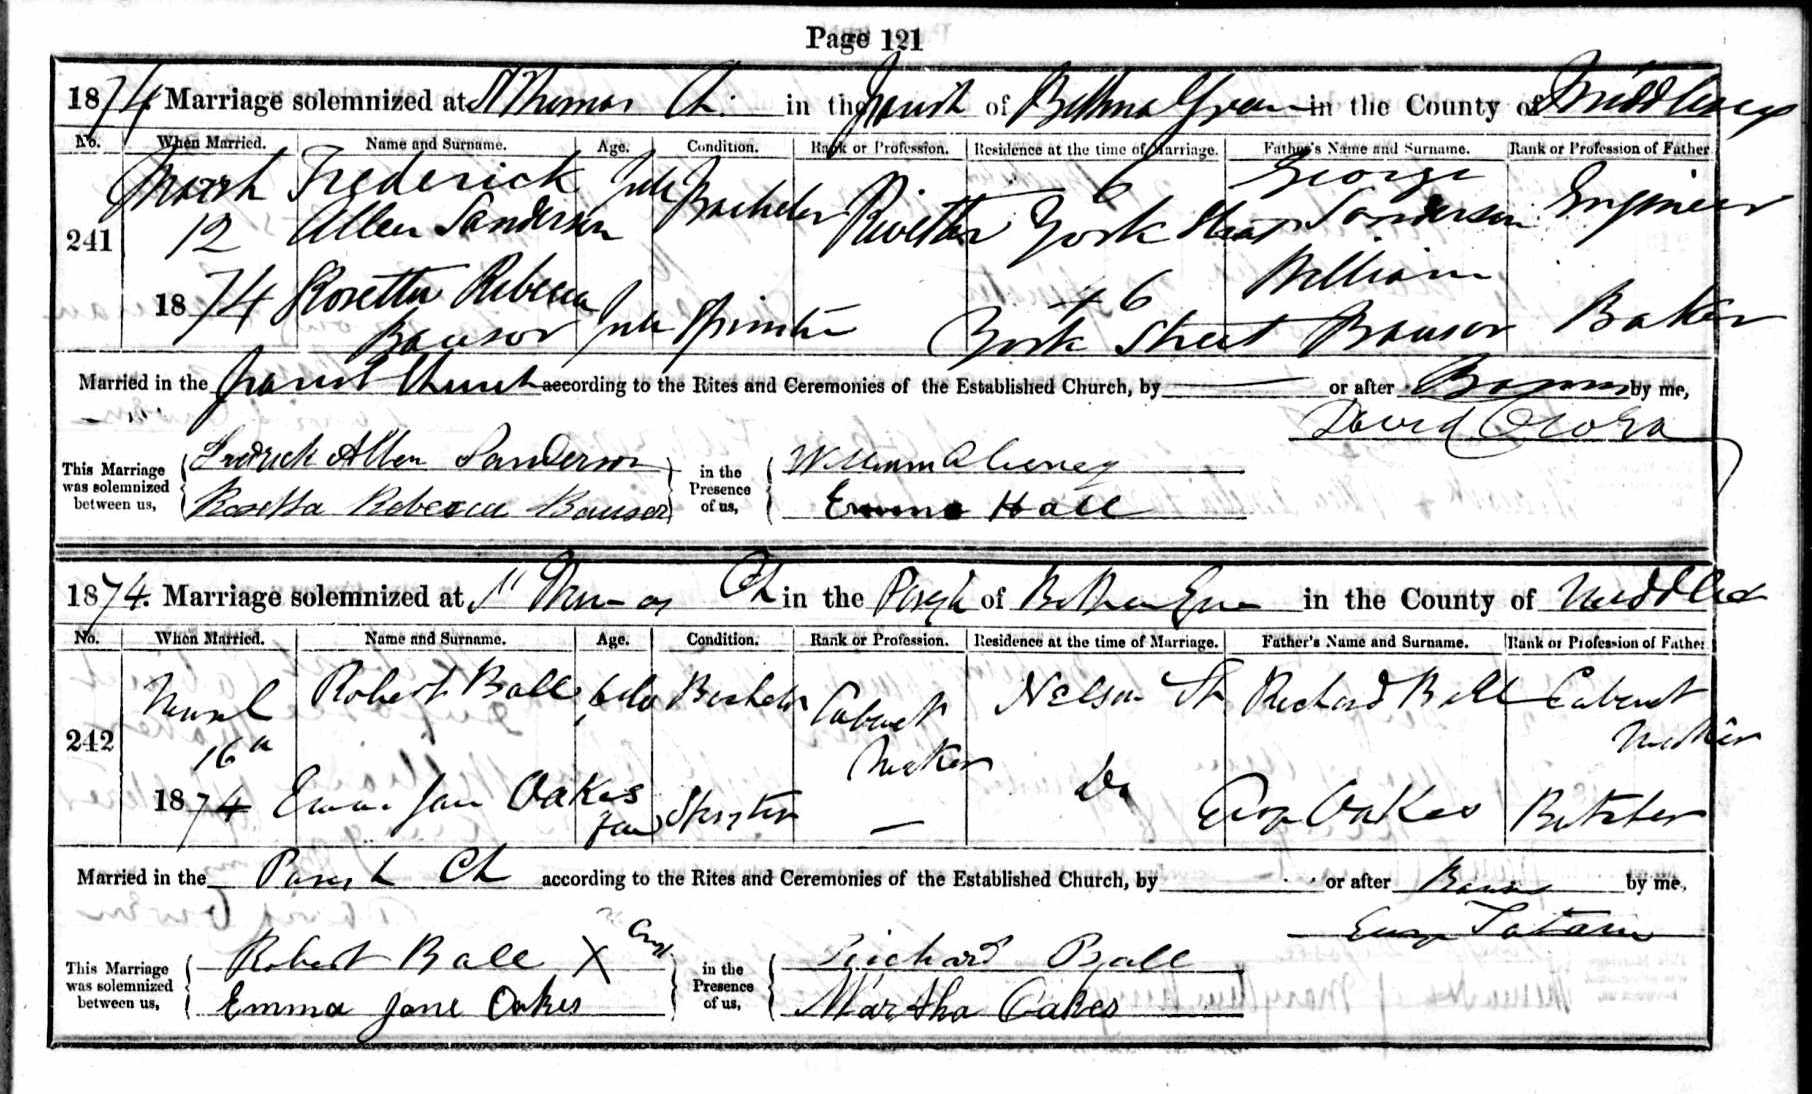 Page 121
1874 Marriage solemnized at St Thomas Ch. in the Parish of Bethnal Green in the County of Middlesex
No. When Married. Name and Surname. Age. Condition. Rank or Profession. Residence at the time of Marriage. Father's Name and Surname. Rank or Profession of Father.
241 March 12 1874 Frederick Allen Sanderson full Bachelor Rivetter 6 York Street George Sanderson Engineer
Rosetta Rebecca Bawsor full Spinster 6 York Street William Bawsor Baker
Married in the Parish Church according to the Rites and Ceremonies of the Established Church, by or after Banns by me,
David
This Marriage was solemnized between us, Fredrick Allen Sanderson in the Presence of us, William
Rosetta Rebecca Bawsor Emma Hall
1874. Marriage solemnized at St Thomas Ch in the Parish of Bethnal Green in the County of Middlesex
No. When Married. Name and Surname. Age. Condition. Rank or Profession. Residence at the time of Marriage. Father's Name and Surname. Rank or Profession of Father
242 March 16 1874 Robert Ball Bachelor Cabinet Maker Nelson St Richard Ball Cabinet Maker
Emma Jane Oakes Spinster — Do Oakes Butcher
Married in the Parish Ch according to the Rites and Ceremonies of the Established Church, by or after Banns by me,
This Marriage was solemnized between us, Robert Ball X in the Presence of us, Richard Ball
Emma Jane Oakes Martha Oakes